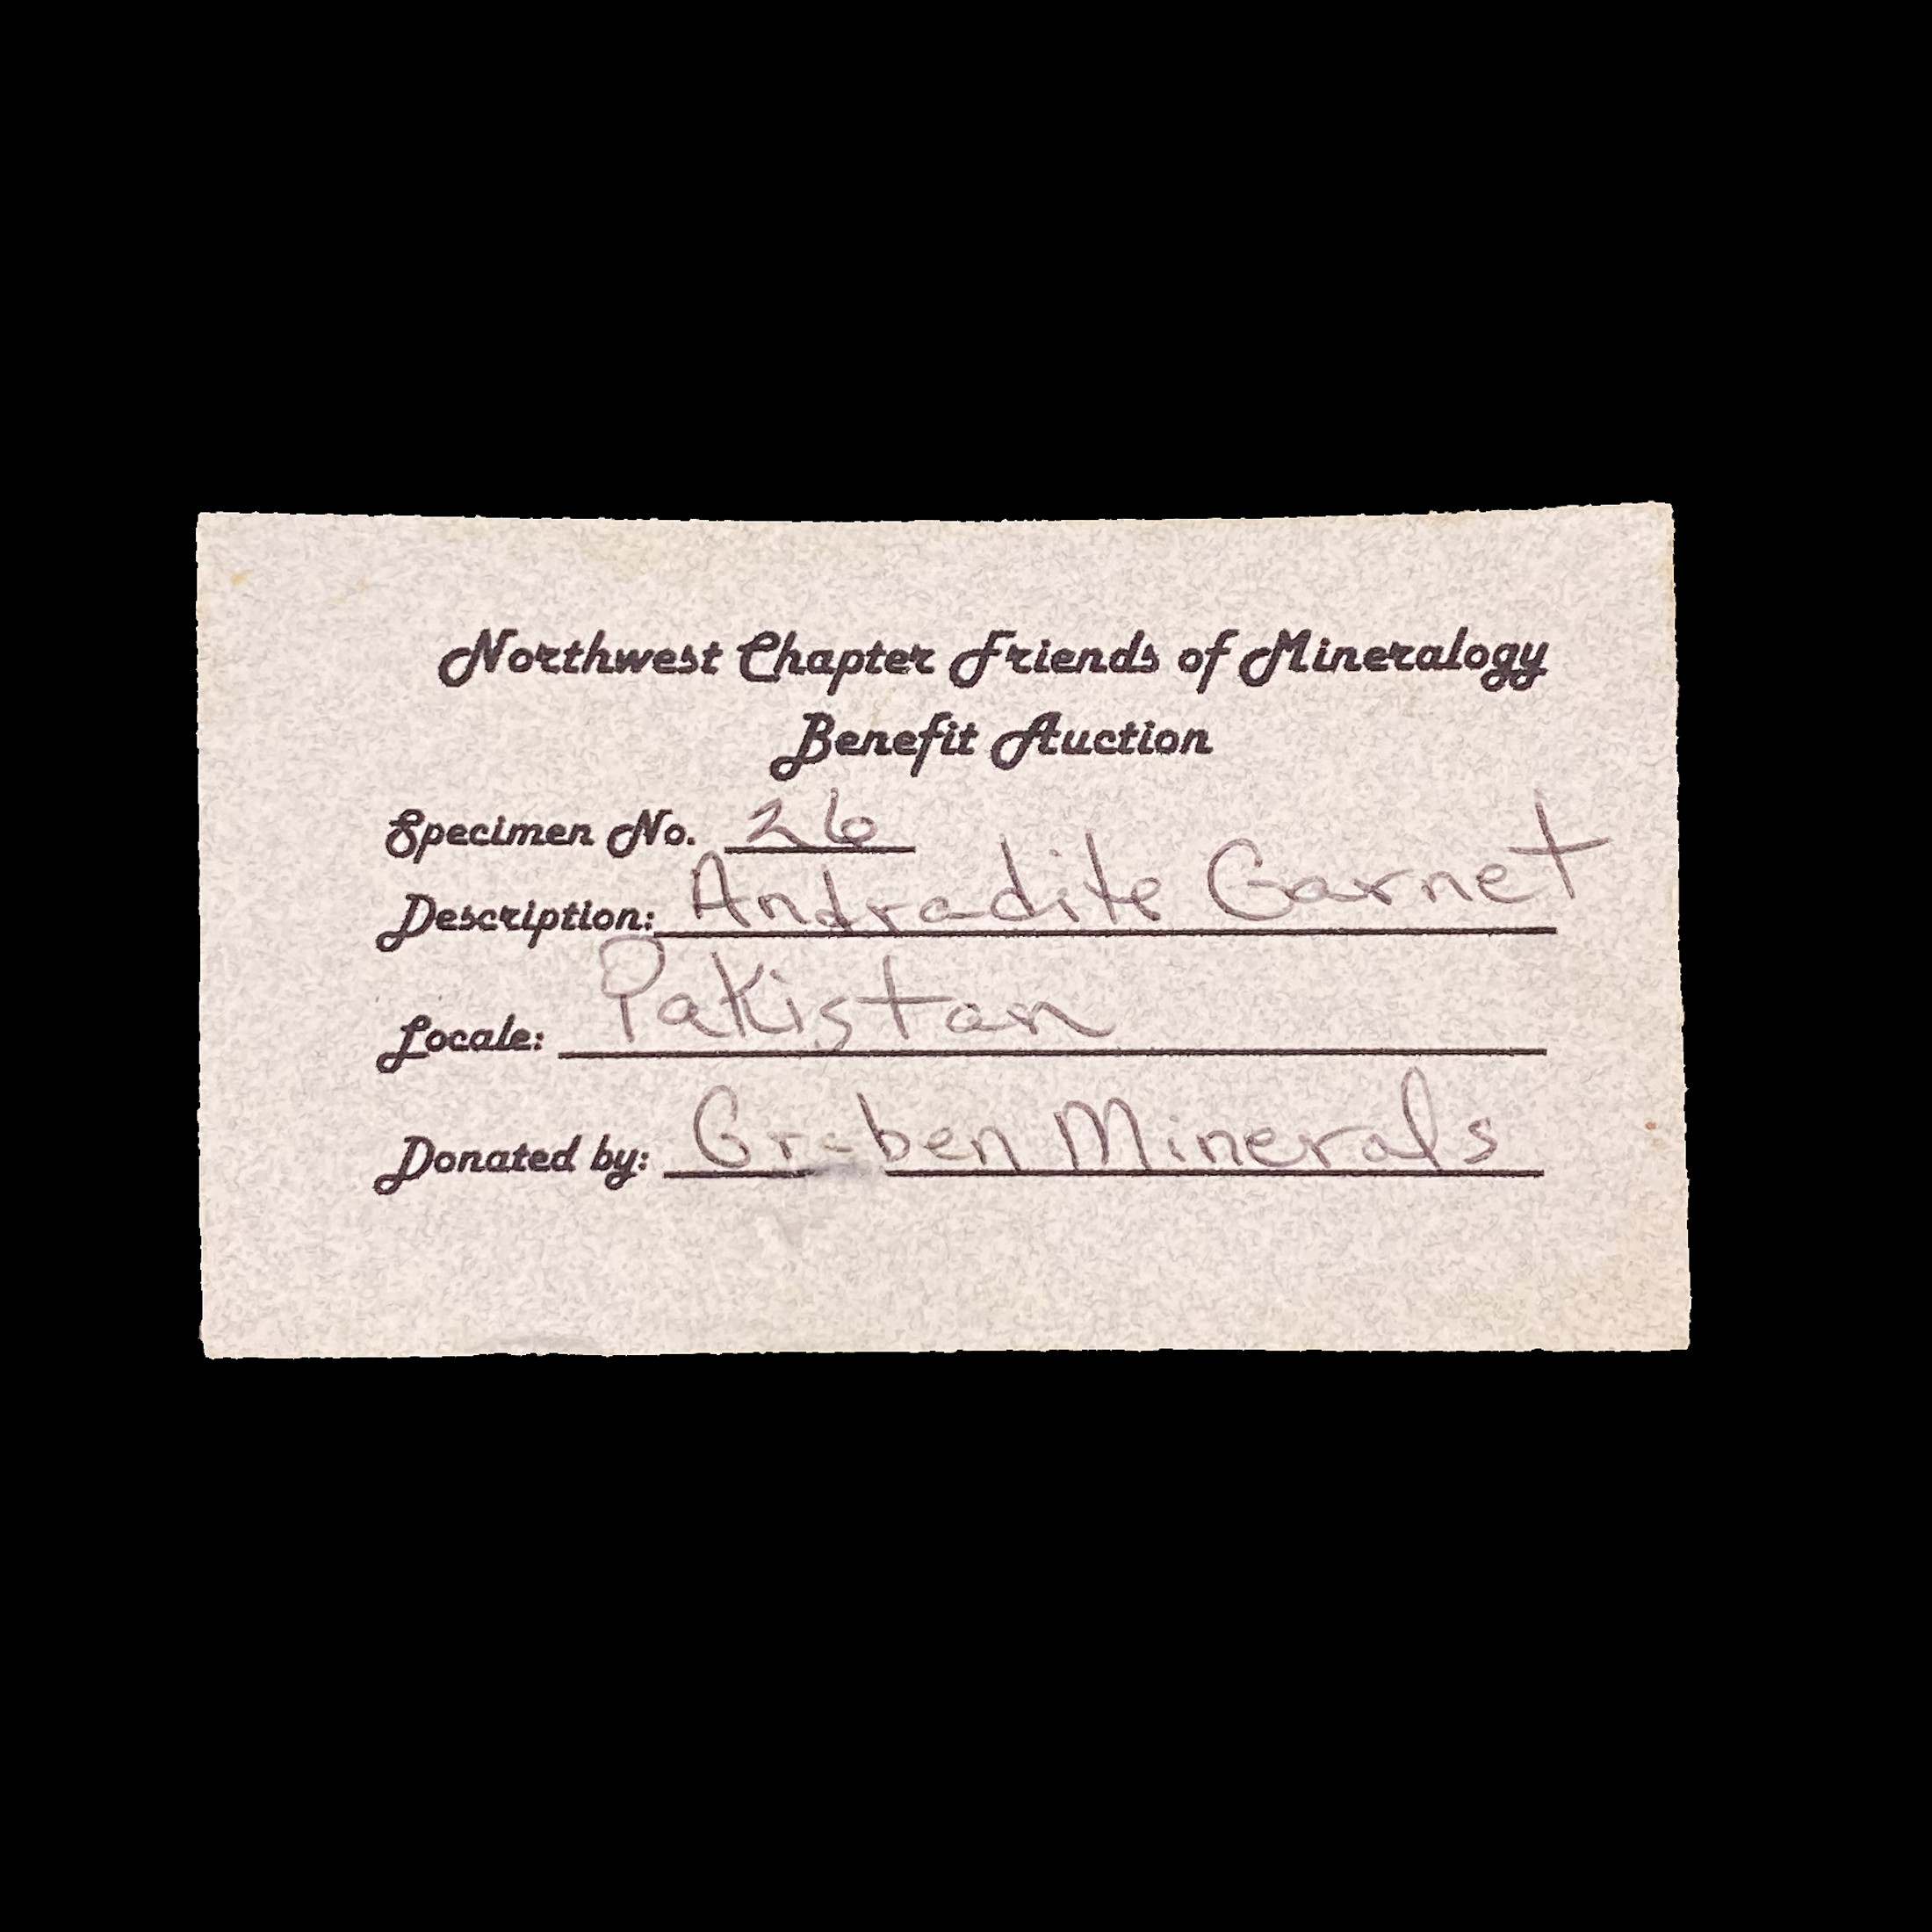 Northwest Chapter Friends of Mineralogy
Benefit Auction
Specimen No. 26
Description: Andradite Garnet
Locale: Pakistan
Donated by: Graben Minerals